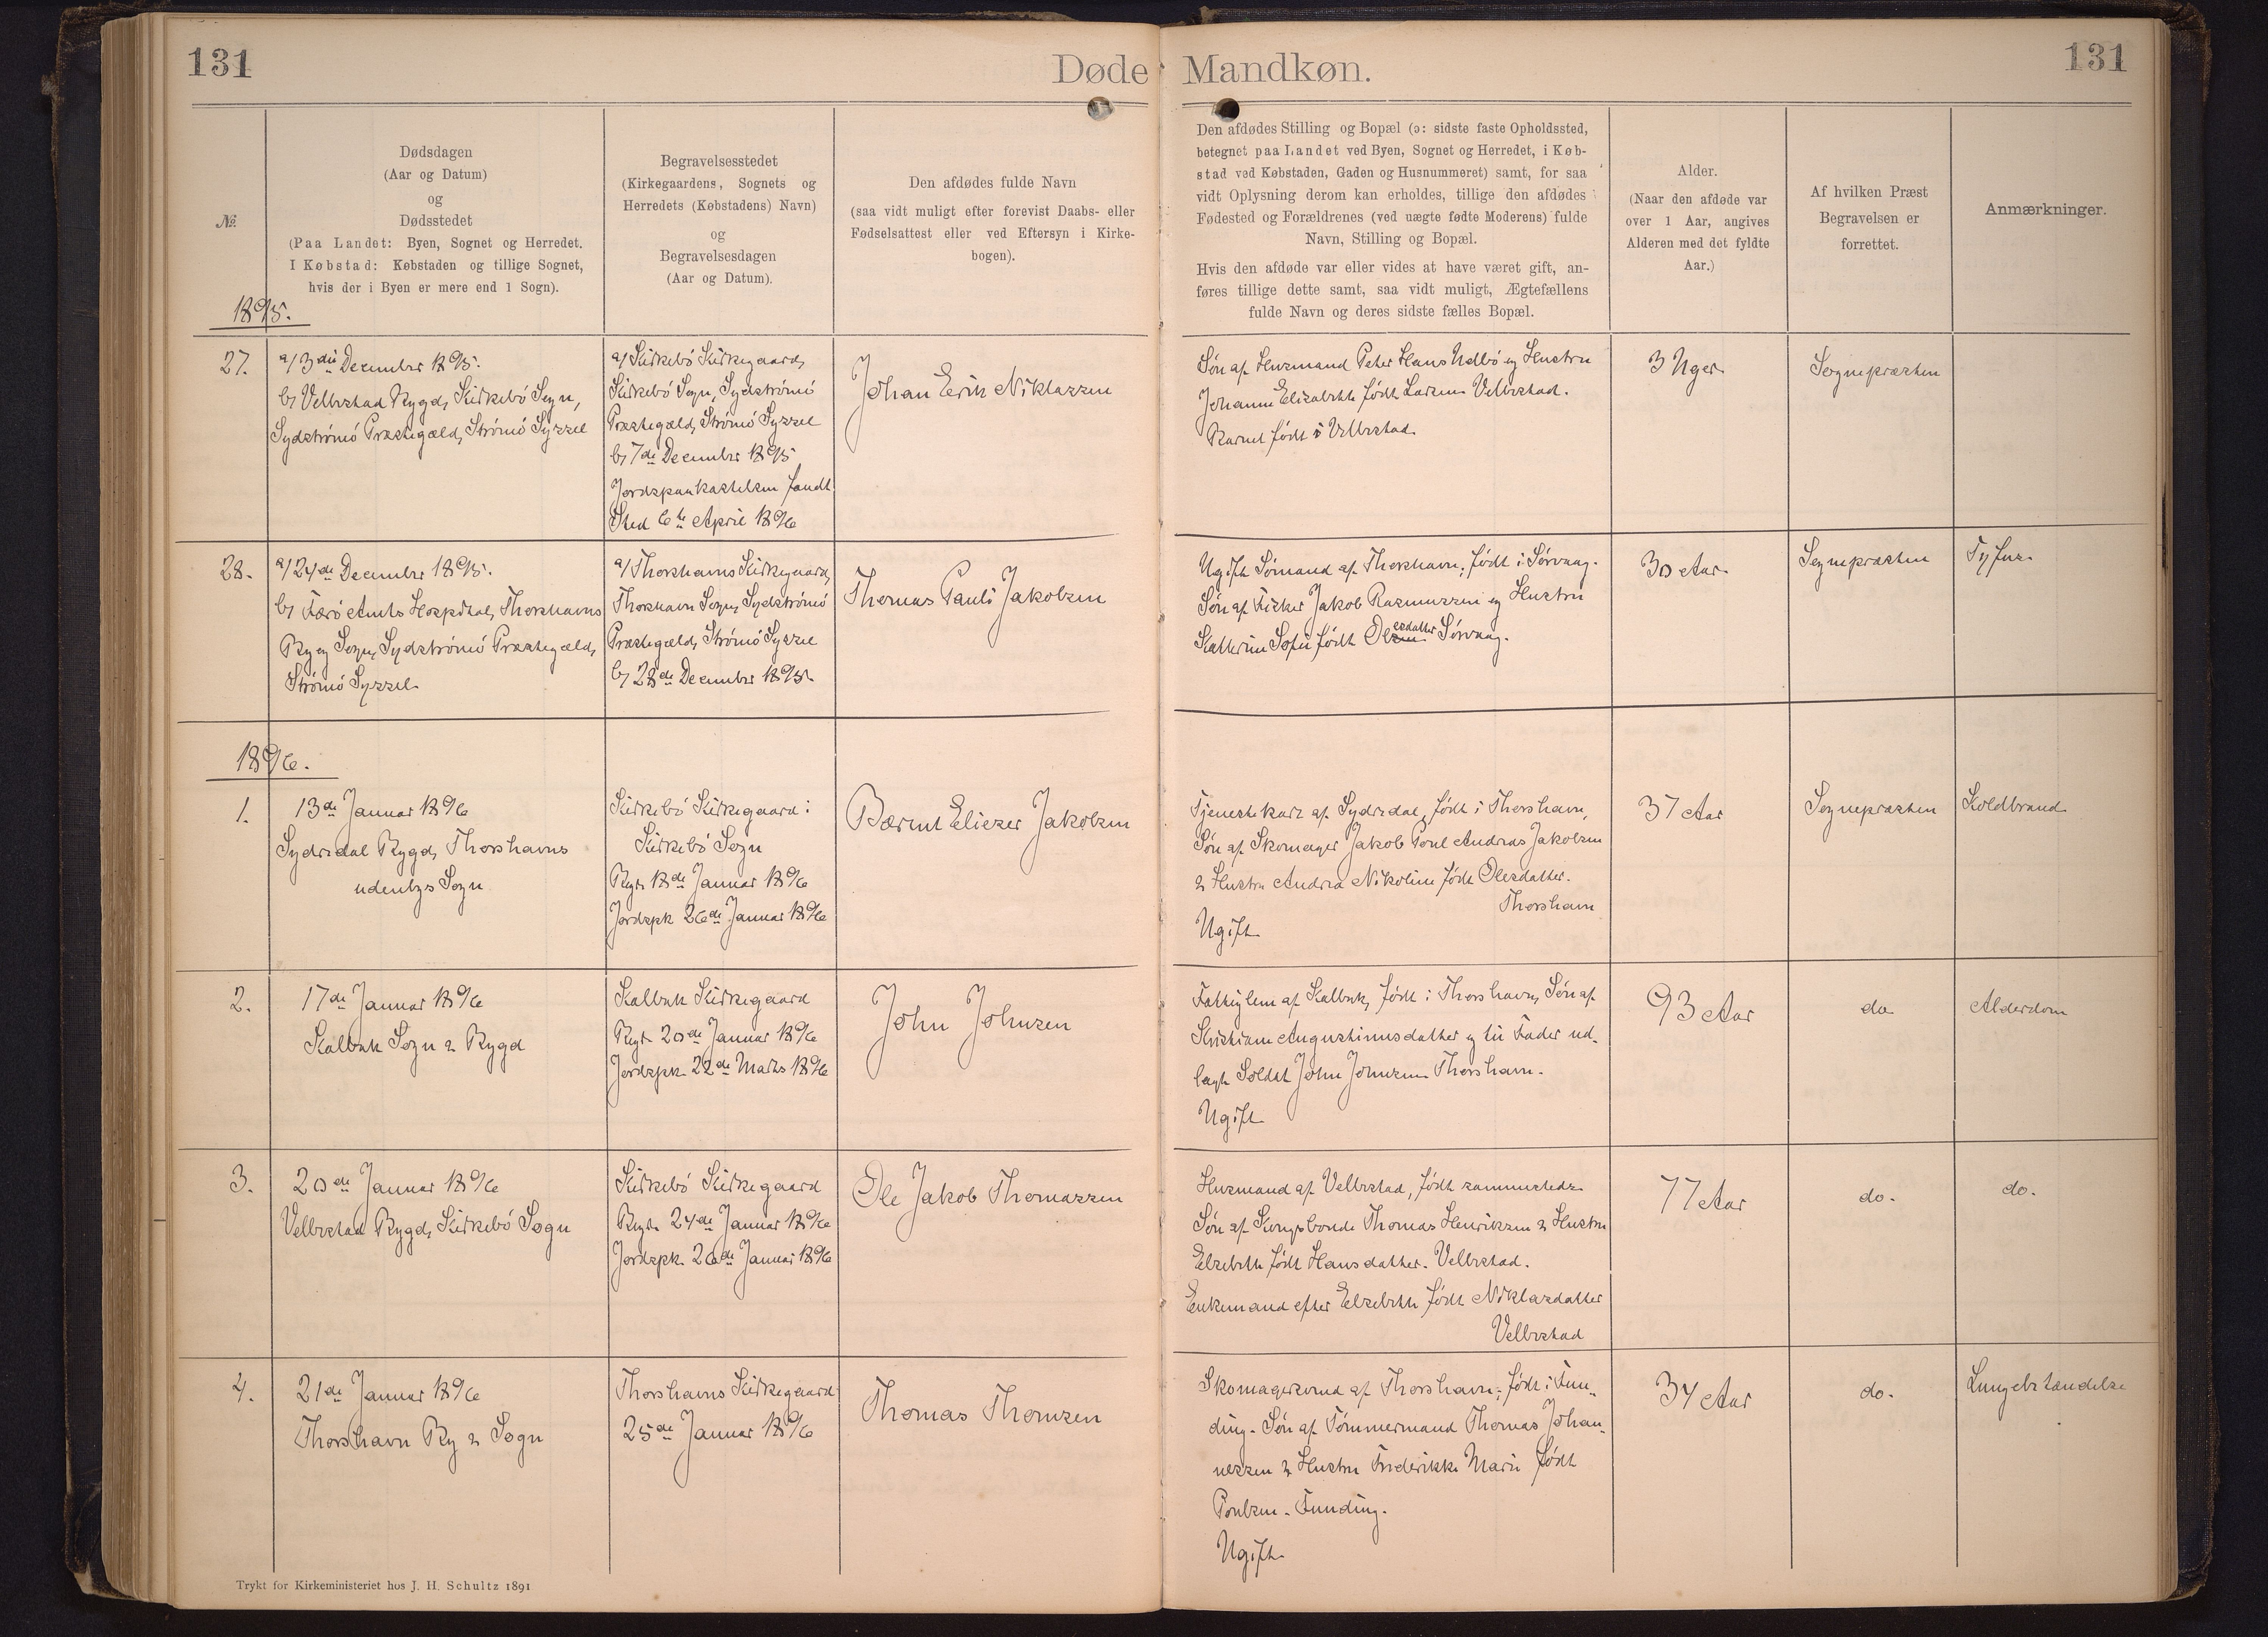 131
Døde Mandkøn.
131
№
Dødsdagen
(Aar og Datum)
og
Dødsstedet
(Paa Landet: Byen, Sognet og Herredet.
I Købstad: Købstaden og tillige Sognet,
hvis der i Byen er mere end 1 Sogn).
Begravelsesstedet
(Kirkegaardens, Sognets og
Herredets (Købstadens) Navn)
og
Begravelsesdagen
(Aar og Datum).
Den afdødes fulde Navn
(saa vidt muligt efter forevist Daabs- eller
Fødselsattest eller ved Eftersyn i Kirke-
bogen).
Den afdødes Stilling og Bopæl (ɔ: sidste faste Opholdssted,
betegnet paa Landet ved Byen, Sognet og Herredet, i Køb-
stad ved Købstaden, Gaden og Husnummeret) samt, for saa
vidt Oplysning derom kan erholdes, tillige den afdødes
Fødested og Forældrenes (ved uægte fødte Moderens) fulde
Navn, Stilling og Bopæl.
Hvis den afdøde var eller vides at have været gift, an-
føres tillige dette samt, saa vidt muligt, Ægtefællens
fulde Navn og deres sidste fælles Bopæl.
Alder.
(Naar den afdøde var
over 1 Aar, angives
Alderen med det fyldte
Aar.)
Af hvilken Præst
Begravelsen er
forrettet.
Anmærkninger.
1895.
27.
a/ 3die December 1895.
b/ Velbestad Bygd, Kirkebö Sogn,
Sydströmö Præstegæld, Strömö Syssel
a/ Kirkebö Kirkegaard,
Kirkebö Sogn, Sydströmö
Præstegæld, Strömö Syssel
b/ 7de December 1895
Jordspaakastelsen fandt
Sted 6te April 1896
Johan Erik Niklassen
Søn af Husmand Peter Hans Udbö og Hustru
Johanne Elisabeth født Larsen Velbestad.
Barnet født i Velbestad.
3 Uger
Sognepræsten
28.
a/ 24de December 1895.
b/ Færö Amts Hospital, Thorshavns
By og Sogn, Sydströmö Præstegæld,
Strömö Syssel.
a/ Thorshavns Kirkegaard,
Thorshavn Sogn, Sydströmö
Præstegæld, Strömö Syssel
b/ 28de December 1895.
Thomas Pauli Jakobsen
Ugift Sömand af Thorshavn; født i Sörvaag.
Søn af Fisker Jakob Rasmussen og Hustru
Katterine Sofie født Olesdatter Sörvaag.
30 Aar
Sognepræsten
Tyfus.
1896.
1.
13de Januar 1896
Sydredal Bygd, Thorshavns
udenbys Sogn
Kirkebö Kirkegaard i
Kirkebö Sogn
Begr. 18de Januar 1896
Jordspk 26de Januar 1896
Bærent Eliezer Jakobsen
Tjenestekarl af Sydredal, født i Thorshavn,
Søn af Skomager Jakob Poul Andreas Jakobsen
& Hustru Andrea Nikoline født Olesdatter.
Thorshavn
Ugift
37 Aar
Sognepræsten
Koldbrand
2.
17de Januar 1896
Kalbak Sogn & Bygd
Kalbak Kirkegaard
Begr. 20de Januar 1896
Jordspk. 22de Marts 1896
John Johnsen
Fattiglem af Kalbak, født i Thorshavn, Søn af
Kristiane Augustinusdatter og til Fader ud-
lagt Soldat John Johnsen Thorshavn.
Ugift
93 Aar
do
Alderdom
3.
20de Januar 1896
Velbestad Bygd, Kirkebö Sogn
Kirkebö Kirkegaard
Begr. 24de Januar 1896
Jordspk. 26de Januar 1896
Ole Jakob Thomassen
Husmand af Velbestad, født sammesteds.
Søn af Kongsbonde Thomas Henriksen & Hustru
Elsebeth født Hansdatter. Velbestad.
Enkemand efter Elsebeth født Niklasdatter
Velbestad
77 Aar
do.
do.
4.
21de Januar 1896
Thorshavn By & Sogn
Thorshavns Kirkegaard
25de Januar 1896
Thomas Thomsen
Skomagersvend af Thorshavn; født i Fun-
ding. Søn af Tömmermand Thomas Johan-
nessen & Hustru Frederikke Marie født
Poulsen. Funding.
Ugift
34 Aar
do.
Lungebetændelse
Trykt for Kirkeministeriet hos J. H. Schultz 1891